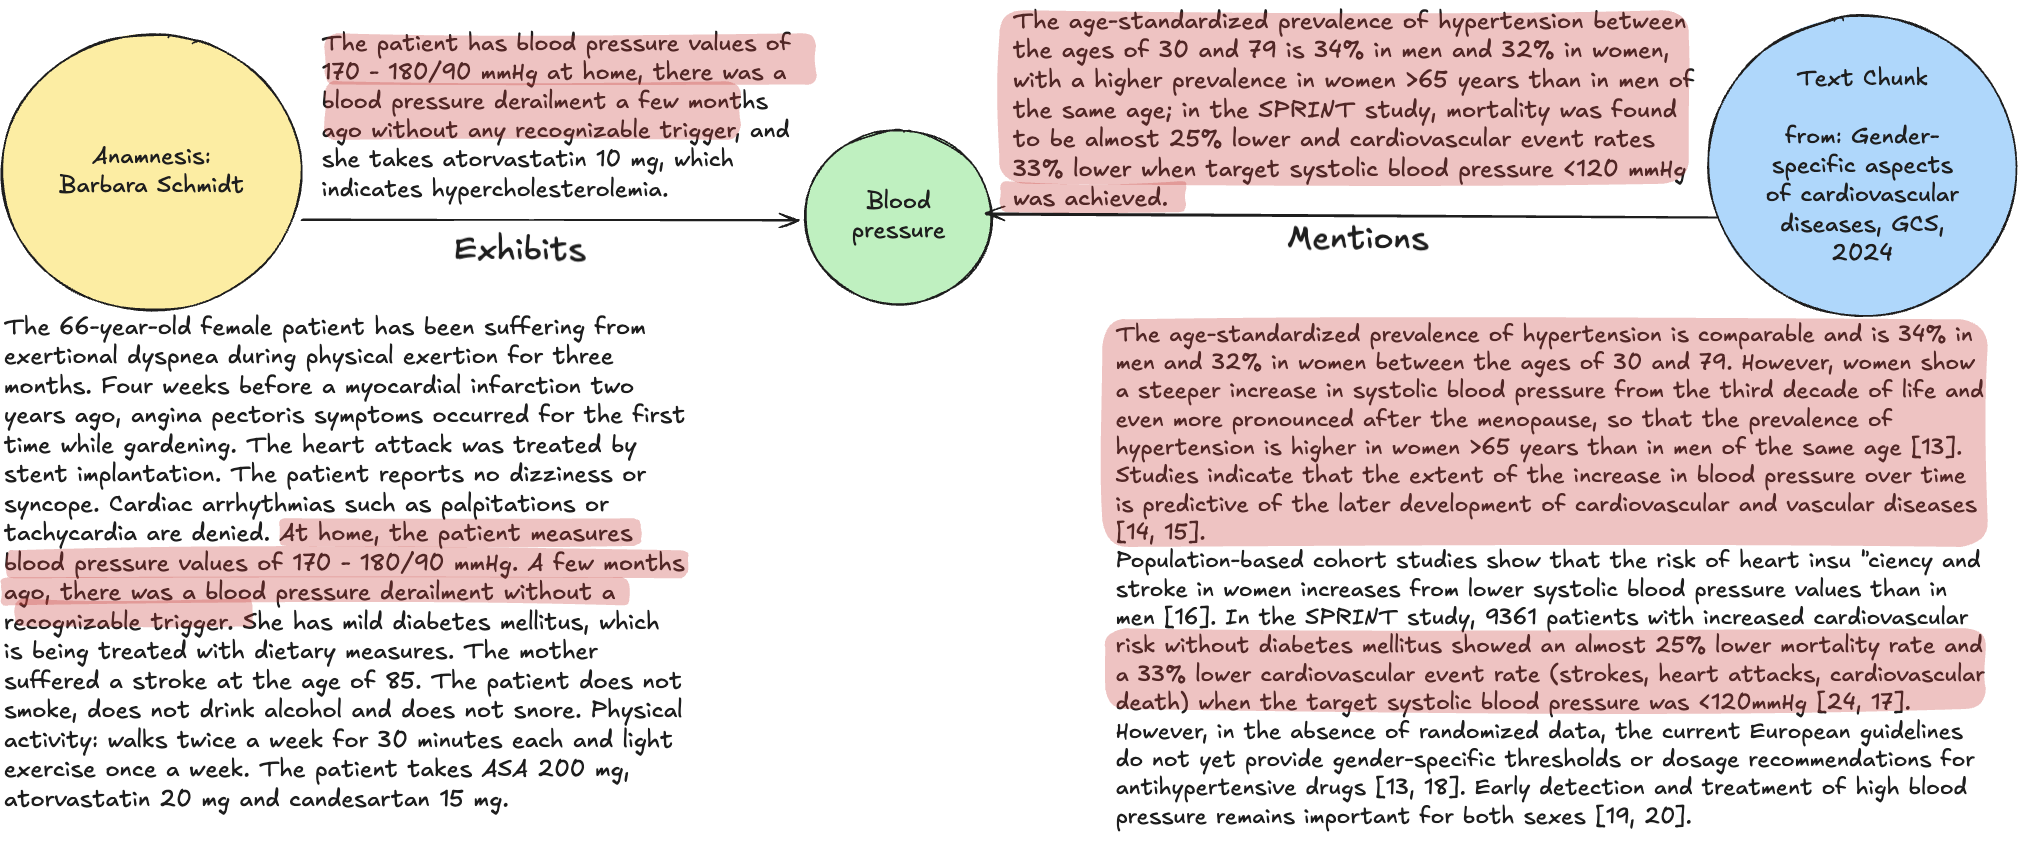 Anamnesis:
Barbara Schmidt
The patient has blood pressure values of
170 - 180/90 mmHg at home, there was a
blood pressure derailment a few months
ago without any recognizable trigger, and
she takes atorvastatin 10 mg, which
indicates hypercholesterolemia.
Exhibits
Blood
pressure
The age-standardized prevalence of hypertension between
the ages of 30 and 79 is 34% in men and 32% in women,
with a higher prevalence in women >65 years than in men of
the same age; in the SPRINT study, mortality was found
to be almost 25% lower and cardiovascular event rates
33% lower when target systolic blood pressure <120 mmHg
was achieved.
Mentions
Text Chunk
from: Gender-
specific aspects
of cardiovascular
diseases, GCS,
2024
The 66-year-old female patient has been suffering from
exertional dyspnea during physical exertion for three
months. Four weeks before a myocardial infarction two
years ago, angina pectoris symptoms occurred for the first
time while gardening. The heart attack was treated by
stent implantation. The patient reports no dizziness or
syncope. Cardiac arrhythmias such as palpitations or
tachycardia are denied. At home, the patient measures
blood pressure values of 170 - 180/90 mmHg. A few months
ago, there was a blood pressure derailment without a
recognizable trigger. She has mild diabetes mellitus, which
is being treated with dietary measures. The mother
suffered a stroke at the age of 85. The patient does not
smoke, does not drink alcohol and does not snore. Physical
activity: walks twice a week for 30 minutes each and light
exercise once a week. The patient takes ASA 200 mg,
atorvastatin 20 mg and candesartan 15 mg.
The age-standardized prevalence of hypertension is comparable and is 34% in
men and 32% in women between the ages of 30 and 79. However, women show
a steeper increase in systolic blood pressure from the third decade of life and
even more pronounced after the menopause, so that the prevalence of
hypertension is higher in women >65 years than in men of the same age [13].
Studies indicate that the extent of the increase in blood pressure over time
is predictive of the later development of cardiovascular and vascular diseases
[14, 15].
Population-based cohort studies show that the risk of heart insu "ciency and
stroke in women increases from lower systolic blood pressure values than in
men [16]. In the SPRINT study, 9361 patients with increased cardiovascular
risk without diabetes mellitus showed an almost 25% lower mortality rate and
a 33% lower cardiovascular event rate (strokes, heart attacks, cardiovascular
death) when the target systolic blood pressure was <120mmHg [24, 17].
However, in the absence of randomized data, the current European guidelines
do not yet provide gender-specific thresholds or dosage recommendations for
antihypertensive drugs [13, 18]. Early detection and treatment of high blood
pressure remains important for both sexes [19, 20].